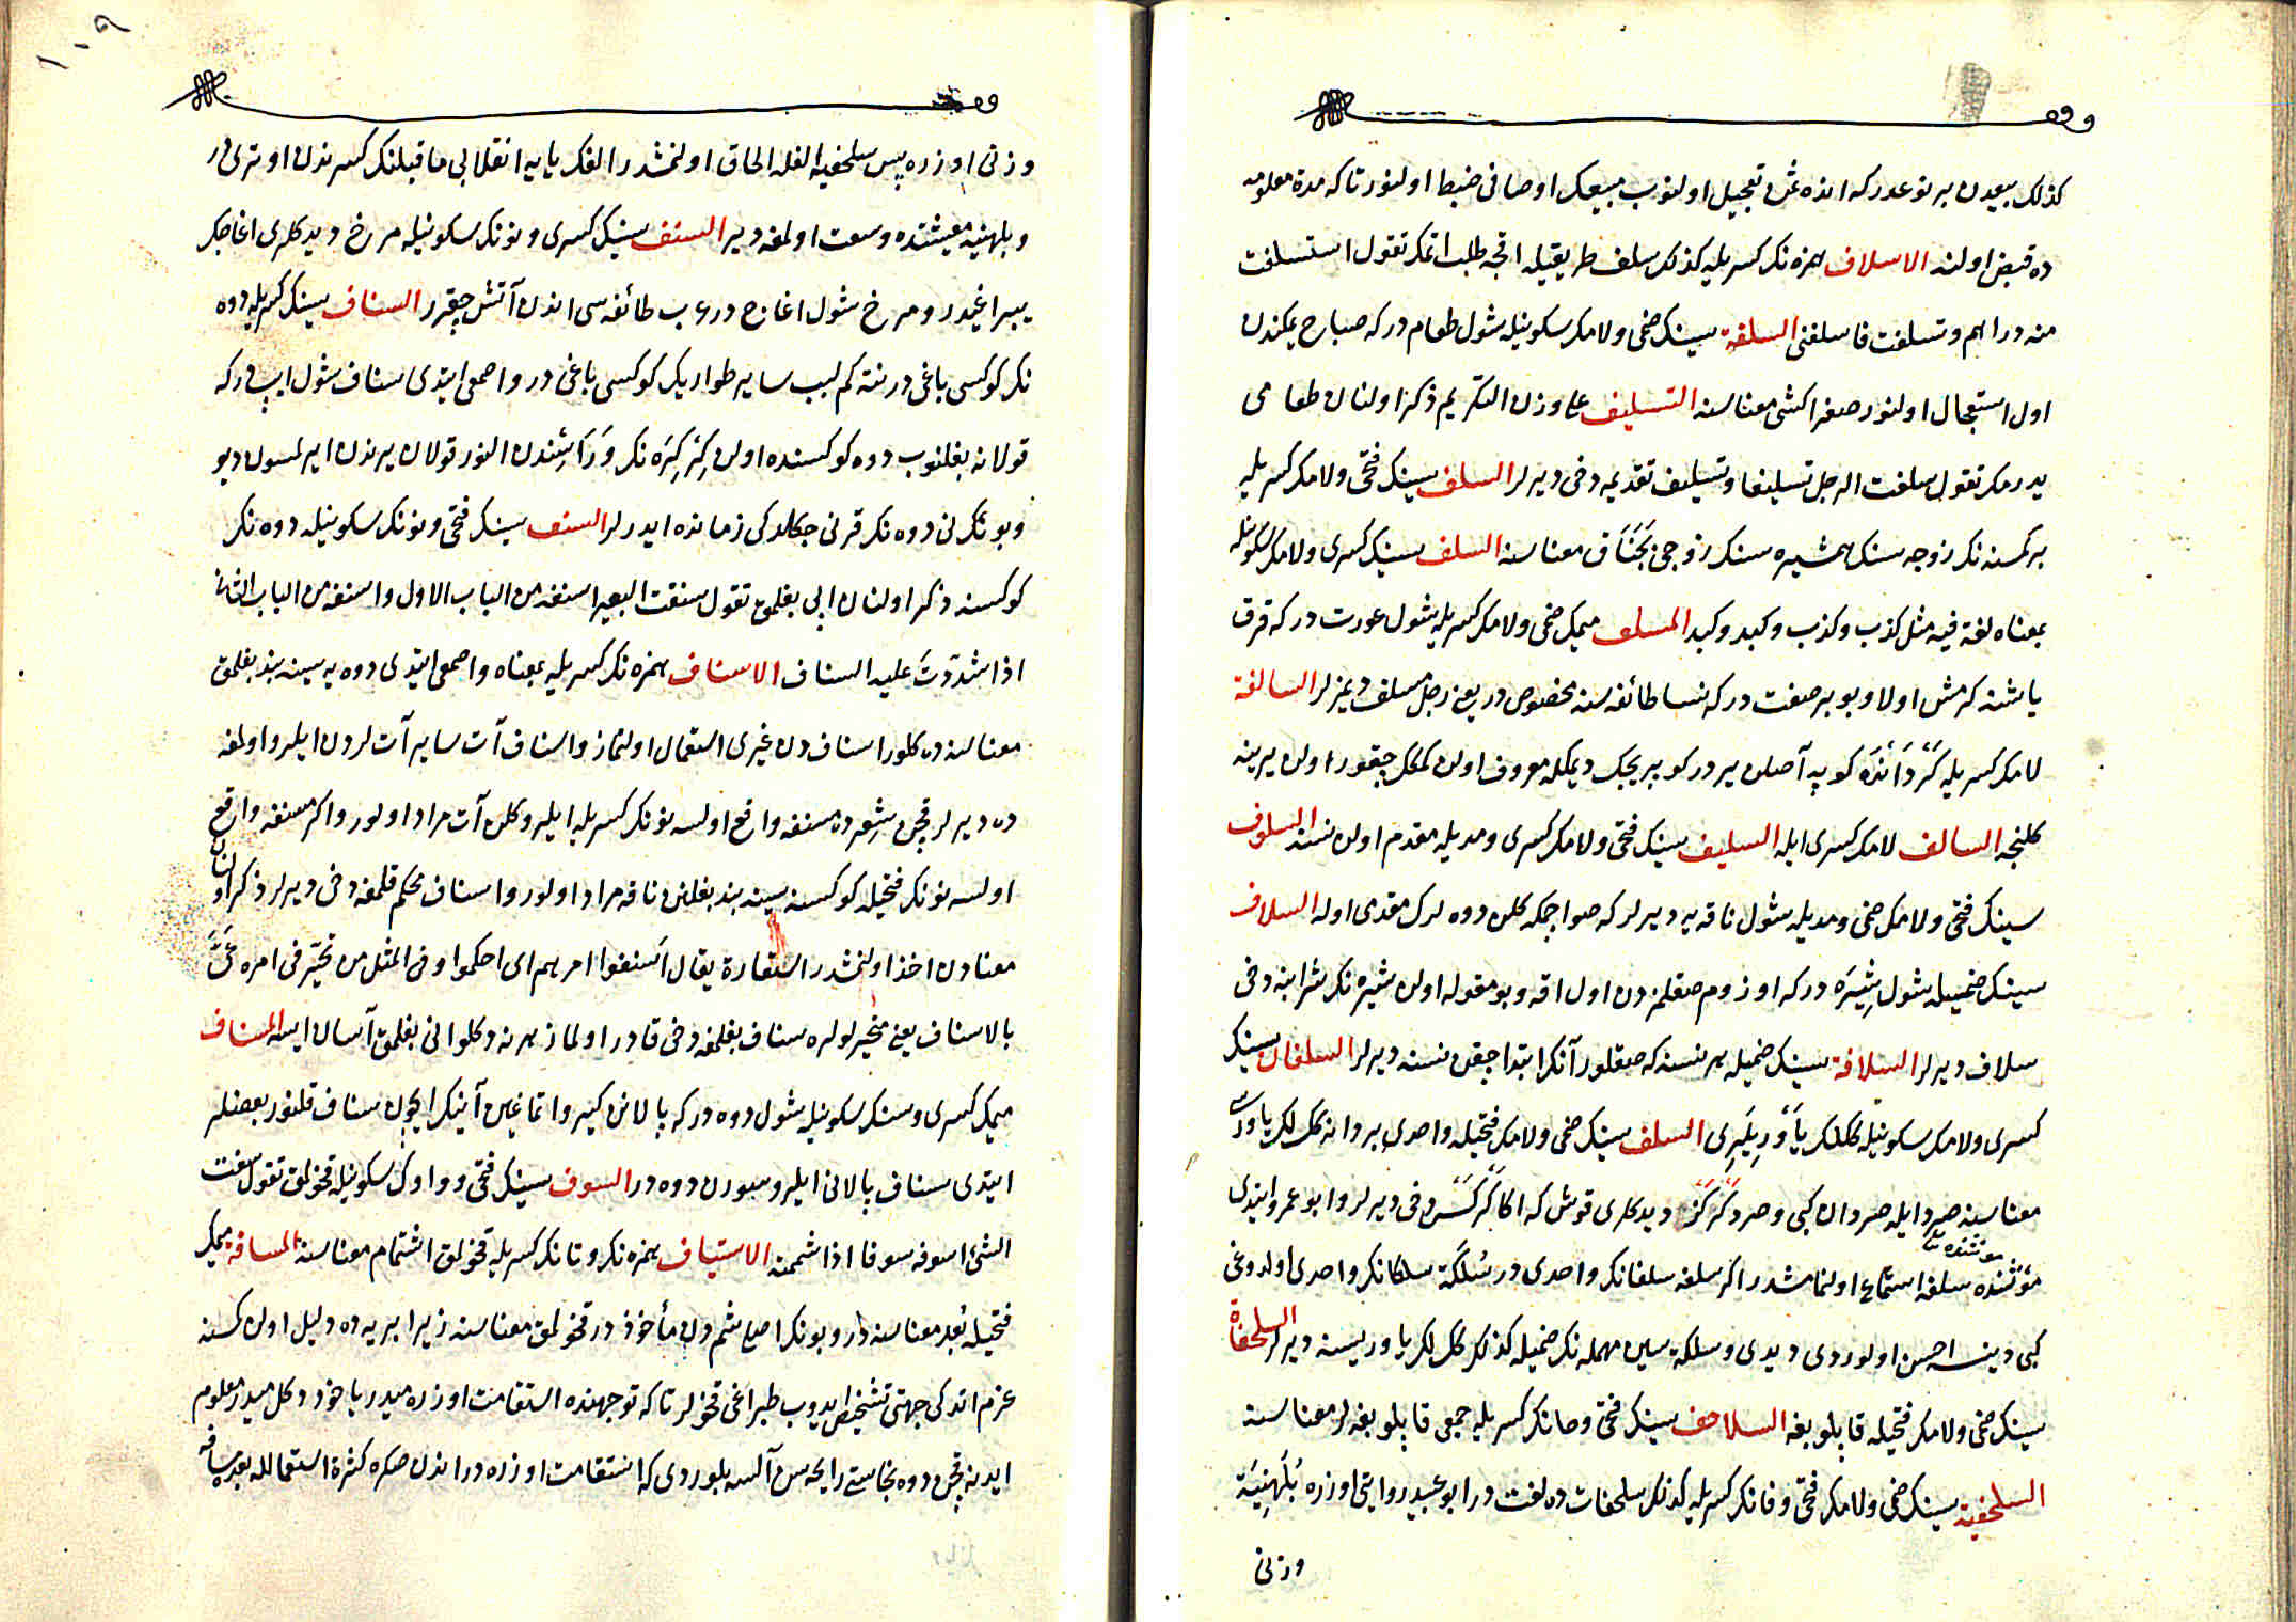 كذلك بيعدن بر نوعدركه انده ثمن تعجيل اولنوب مبيعك اوصافى ضبط اولنور تاكه مدة معلومه
ده قبض اولنه الاسلاف همزه نك كسريله كذلك سلف طريقيله اقچه طلب اتمك تقول استسلفت
منه دراهم وتسلفت فاسلفنى السلفة سينك ضمى ولامك سكونيله شول طعام دركه صباح يمكندن
اول استعجال اولنور صفرا كشى معناسنه التسليف على وزن التكريم ذكر اولنان طعامى
يدرمك تقول سلفت الرجل تسليفا وتسليف تقديمه دخى ديرلر السلف سينك فتحى ولامك كسريله
بر كمسنه نك زوجه سنك همشيره سنك زوجى بجناق معناسنه السلف سينك كسرى ولامك سكونيله
بمعناه لغة فيه مثل كذب وكذب وكبد وكبد المسلف ميمك ضمى ولامك كسريله شول عورت دركه قرق
ياشنه كرمش اولا وبو بر صفت دركه نسا طائفه سنه مخصوص در يعنى رجل مسلف ديمزلر السالفة
لامك كسريله كردانده كوپه آصلن يردر كوپريجك ديمكله معروف اولن كمكك چقور اولن يرينه
كلنجه السالف لامك كسرى ايله السليف سينك فتحى ولامك كسرى ومديله مقدم اولن نسنه السلوف
سينك فتحى ولامك ضمى ومديله شول ناقه يه ديرلر كه صواجمكه كلن دوه لرك مقدمى اوله السلاف
سينك ضميله شول شيره دركه اوزوم صقلمزدن اول اقه وبو مقوله اولن شيره نك شرابنه دخى
سلاف ديرلر السلافة سينك ضميله هر نسنه كه صقلور آنك ابتدا چقن نسنه ديرلر السلفان سينك
كسرى ولامك سكونيله ككلك ياوريلرى السلف سينك ضمى ولامك فتحيله واحدى بر دانه ككلك ياوريسى
معناسنه صرد ايله صردان كبى وصرد ديدكلرى قوش كه اكا دخى ديرلر وابو عمرو ايتدى
مؤنثنده سلفه استماع اولنمامشدر اكر سلفه سلفانك واحدى در سلكة سلكانك واحدى اولدوغى
كبى دينسه احسن اولوردى ديدى وسلكة سين مهمله نك ضميله كذلك ككلك ياوريسنه ديرلر السلحفاة
سينك ضمى ولامك فتحيله قاپلوبغه السلاحف سينك فتحى وحانك كسريله جمعى قاپلوبغه لر معناسنه
السلحفية سينك ضمى ولامك فتحى وفانك كسريله كذلك سلحفات ده لغت در ابو عبيد روايتى اوزره بلهنية
وزنى
١٠٩
وزنى اوزره پس سلحفيه الفله الحاق اولنمشدر الفك يايه انقلابى ماقبلنك كسرندن اوتريدر
وبلهنيه معيشتده وسعت اولمغه دير السنف سينك كسرى ونونك سكونيله مرخ ديدكلرى اغاجك
يپراغيدر ومرخ شول اغاج در عرب طائفه سى اندن آتش چقرر السناف سينك كسريله دوه
نك كوكسى باغى در نته كم لبب ساير طوارك كوكسى باغى در واصمعى ايتدى سناف شول ايپ دركه
قولانه بغلنوب دوه كوكسنده اولن كركره نك وراسندن النور قولان يرندن ايرلمسون ديو
وبونى دوه نك قرنى چكلدكى زمانده ايدرلر السنف سينك فتحى ونونك سكونيله دوه نك
كوكسنه ذكر اولنان ايپى بغلمق تقول سنفت البعير اسنفه من الباب الاول واسنفه من الباب الثانى
اذا شددت عليه السناف الاسناف همزه نك كسريله بمعناه واصمعى ايتدى دوه يه سينه بند بغلمق
معناسنه كلور اسناف دن غيرى استعمال اولنماز واسناف آت ساير آت لردن ايلرو اولمغه
ده ديرلر قچن شعرده مسنفه واقع اولسه نونك كسريله ايلرو كلن آت مراد اولور واكر مسنفه واقع
اولسه نونك فتحيله كوكسنه سينه بند بغلنن ناقه مراد اولور واسناف محكم قلمغه دخى ديرلر ذكر اولنان
معنادن اخذ اولنمشدر استعارة يقال اسنفوا امرهم اى احكموا وفى المثل من تحير فى امره عى
بالاسناف يعنى متحير لوله سناف بغلمغه دخى قادر اولماز هر نه دكلو انى بغلمق آسان ايسه المسناف
ميمك كسرى وسينك سكونيله شول دوه دركه پالانى كيرو اتماغين آنك ايچون سناف قلنور بعضلر
ايتدى سناف پالانى ايلرو سورن دوه در السوف سينك فتحى وواوك سكونيله قخولمق تقول سفت
الشئ اسوفه سوفا اذا شممته الاستياف همزه نك وتانك كسريله قخولمق اشتمام معناسنه المسافة ميمك
فتحيله بعد معناسنه در وبونك اصلى شم دن مأخوذ در قخولمق معناسنه زيرا بريه ده دليل اولن كمسنه
عزم اتدكى جهتى تشخيص ايدوب طپراغى قخولر تاكه توجهنده استقامت اوزره ميدر ياخود دكل ميدر معلوم
ايدنه قچن دوه نجاستى رايحه سن آلسه بلوردى كه استقامت اوزره در اندن صكره كثرة استعمالله بعده مسافه